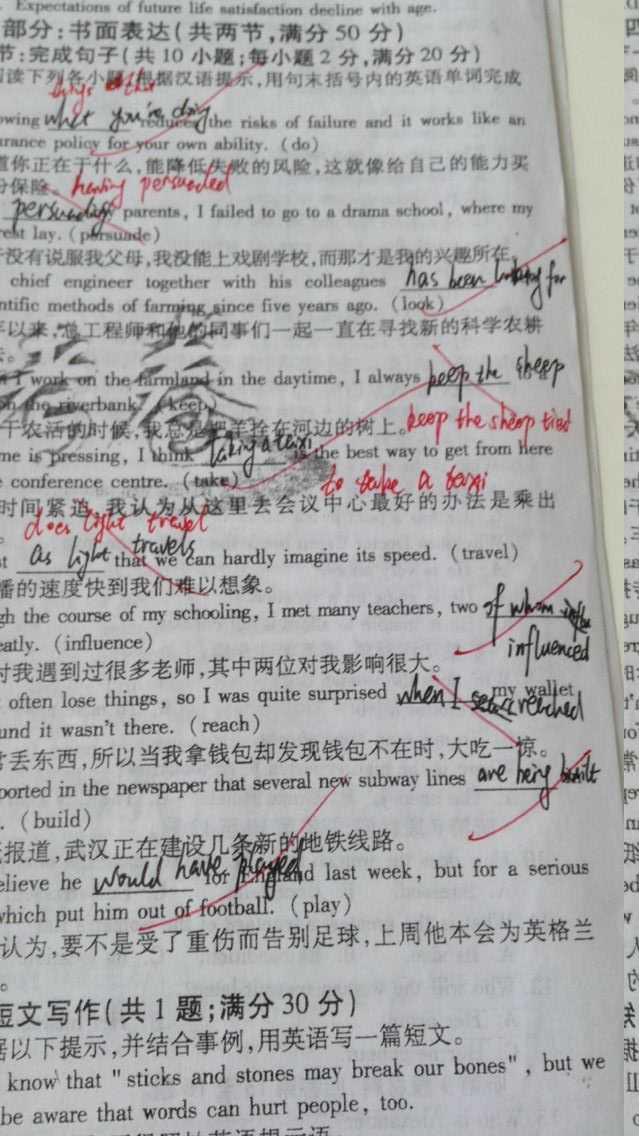 Expectations of future life satisfaction decline with age.
部分:书面表达(共两节,满分 50 分)
节:完成句子(共 10 小题;每小题 2 分,满分 20 分)
阅读下列各小题,根据汉语提示,用句末括号内的英语单词完成
things that
owing what you're doing reduces the risks of failure and it works like an
urance policy for your own ability. (do)
道你正在干什么,能降低失败的风险,这就像给自己的能力买
份保险。 having persuaded
persuading parents, I failed to go to a drama school, where my
rest lay. (persuade)
于没有说服我父母,我没能上戏剧学校,而那才是我的兴趣所在。
chief engineer together with his colleagues has been looking for
ntific methods of farming since five years ago. (look)
年以来,总工程师和他的同事们一起一直在寻找新的科学农耕
I work on the farmland in the daytime, I always keep the sheep to a
on the riverbank. (keep)
干农活的时候,我总是把羊拴在河边的树上。 keep the sheep tied
me is pressing, I think taking a taxi is the best way to get from here
conference centre. (take) to take a taxi
时间紧迫,我认为从这里去会议中心最好的办法是乘出
does light travel
st as light travels that we can hardly imagine its speed. (travel)
播的速度快到我们难以想象。
gh the course of my schooling, I met many teachers, two of whom
eatly. (influence) influenced
对我遇到过很多老师,其中两位对我影响很大。
often lose things, so I was quite surprised when I reached my wallet
und it wasn't there. (reach)
常丢东西,所以当我拿钱包却发现钱包不在时,大吃一惊。
ported in the newspaper that several new subway lines are being built
. (build)
报道,武汉正在建设几条新的地铁线路。
elieve he would have played for England last week, but for a serious
which put him out of football. (play)
认为,要不是受了重伤而告别足球,上周他本会为英格兰
。
短文写作(共 1 题;满分 30 分)
据以下提示,并结合事例,用英语写一篇短文。
know that "sticks and stones may break our bones", but we
be aware that words can hurt people, too.